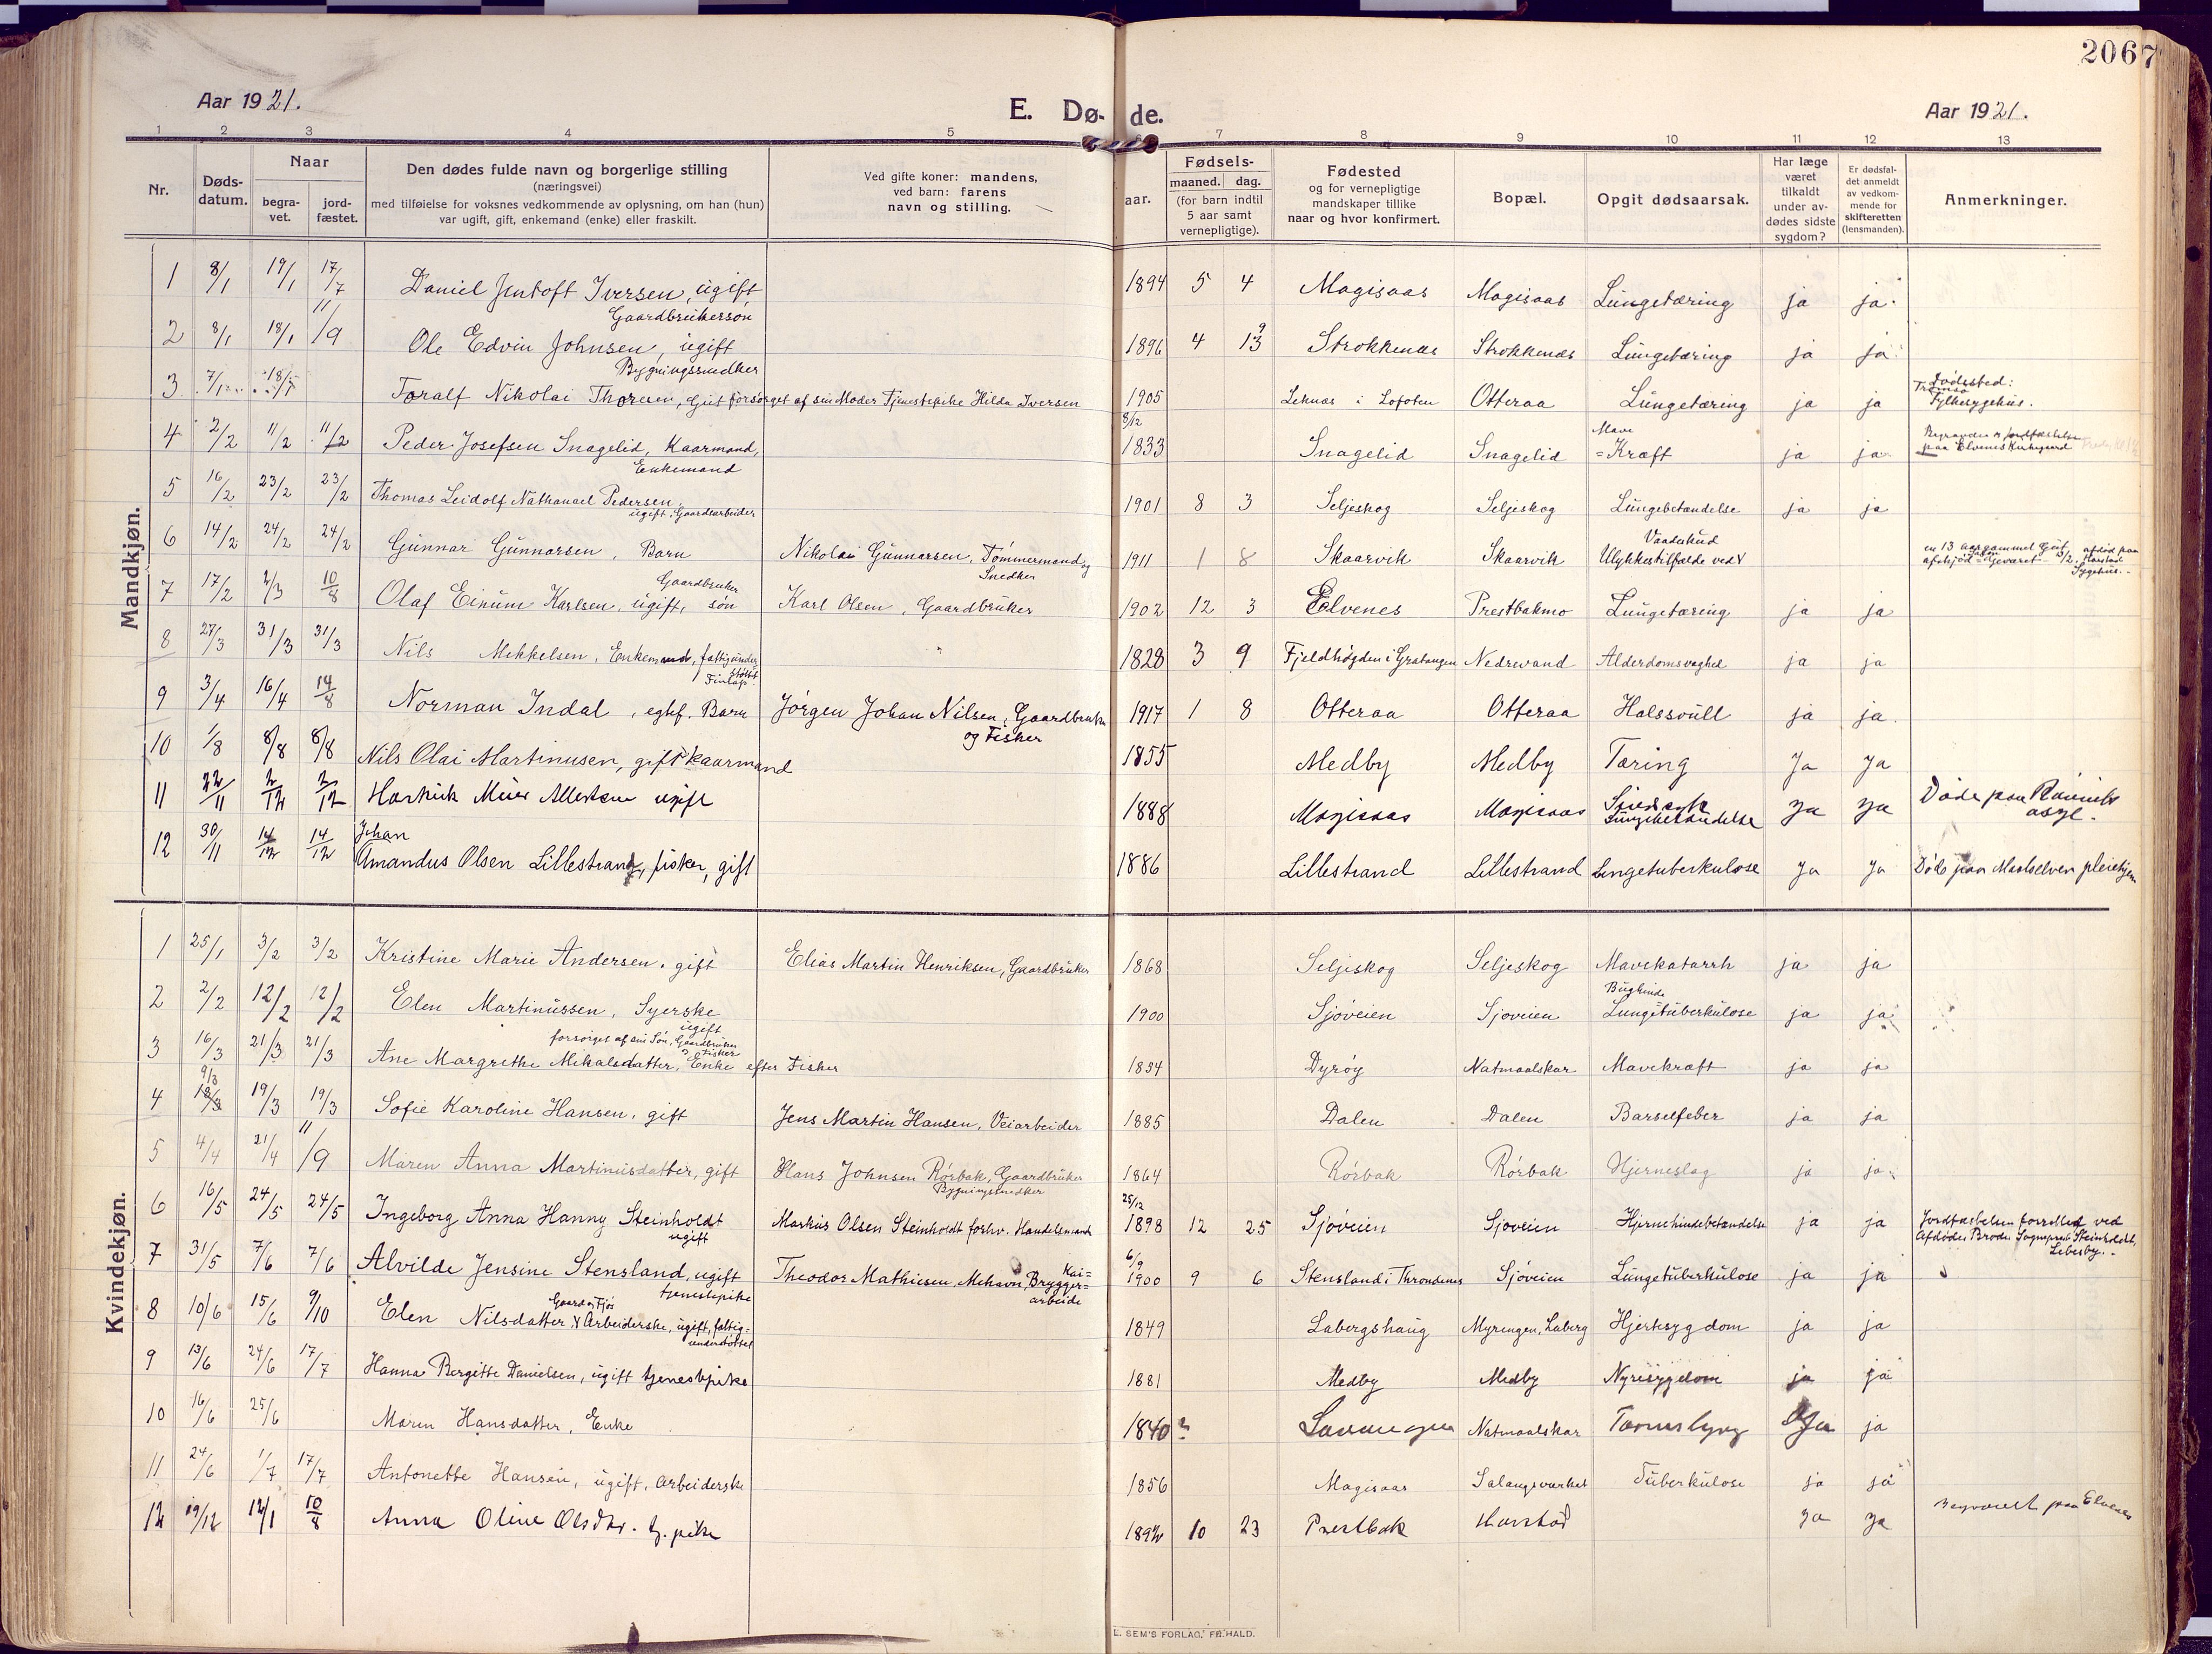 2067
Aar 1921. E. Dø- de. Aar 1921.
1 2 3 4 5 6 7 8 9 10 11 12 13
Nr. Døds-datum. Naar begra-vet. jord-fæstet. Den dødes fulde navn og borgerlige stilling (næringsvei) med tilføielse for voksnes vedkommende av oplysning, om han (hun) var ugift, gift, enkemand (enke) eller fraskilt. Ved gifte koner: mandens, ved barn: farens navn og stilling. aar. Fødsels- maaned. dag. (for barn indtil 5 aar samt vernepligtige). Fødested og for vernepligtige mandskaper tillike naar og hvor konfirmert. Bopæl. Opgit dødsaarsak. Har læge været tilkaldt under av-dødes sidste sygdom? Er dødsfal-det anmeldt av vedkom-mende for skifteretten (lensmanden). Anmerkninger.
Mandkjøn.
1 8/1 19/1 17/7 Daniel Jentoft Iversen, ugift, Gaardbrukersøn 1894 5 4 Magisaas Magisaas Lungetæring ja ja.
2 8/1 18/1 11/9 Ole Edvin Johnsen, ugift Bygningssnedker 1896 4 13 9 Strokkenæs Strokkenæs Lungetæring ja ja
3 7/1 18/7 Toralf Nikolai Thoresen, Gut forsørget af sin Moder Tjenestepike Hilda Iversen 1905 Leknæs i Lofoten Otteraa Lungetæring ja ja Dødssted: Tromsø Fylkesygehus.
4 2/2 11/2 11/2 Peder Josefsen Snagelid, Kaarmand, Enkemand 8/12 1833 Snagelid Snagelid Mave = Kræft ja ja Begravden og Jordfæstelse paa Elvenes Kirkegaard
5 16/2 23/2 23/2 Thomas Leidolf Nathanael Pedersen, ugift, Gaardsarbeider 1901 8 3 Seljeskog Seljeskog Lungebetændelse ja ja
6 14/2 24/2 24/2 Gunnar Gunnarsen, Barn Nikolai Gunnarsen, Tømmermand og Snedker 1911 1 8 Skaarvik Skaarvik Ulykkestilfælde ved Vaadeskud en 13 aar gammel Gut afskjød Geværet - afdød paa Harstad Sygehus.
7 17/2 2/3 10/8 Olaf Einum Karlsen, ugift, Gaardbruker søn Karl Olsen, Gaardbruker 1902 12 3 Elvenes Prestbakmo Lungetæring ja ja
8 27/3 31/3 31/3 Nils Mikkelsen, Enkemand, fattigunderstøttet Finlap. 1828 3 9 Fjeldhøgden i Gratangen Nedrevand Alderdomsvaghed ja ja
9 3/4 16/4 14/8 Norman Indal, egtef. Barn Jørgen Johan Nilsen, Gaardbruker og Fisker 1917 1 8 Otteraa Otteraa Halssvull ja ja.
10 1/8 8/8 8/8 Nils Olai Martinusen, gift kaarmand 1855 Medby Medby Tæring Ja Ja
11 22/11 2/12 2/12 Hartvik Meier Albertsen ugift 1888 Magisaas Magisaas Sindssyk Lungebetændelse Ja Ja Døde paa Rønvik asyl.
12 30/11 14/12 14/12 Johan Amandus Olsen Lillestrand, fisker, gift 1886 Lillestrand Lillestrand Lungetuberkulose Ja Ja Døde paa Maalselven pleiehjem
Kvindekjøn.
1 25/1 3/2 3/2 Kristine Marie Andersen, gift Elias Martin Henriksen, Gaardbruker 1868 Seljeskog Seljeskog Mavekatarrh ja ja
2 2/2 12/2 12/2 Elen Martinussen, Syerske ugift 1900 Sjøveien Sjøveien Bughinde Lungetuberkulose ja ja
3 16/3 21/3 21/3 Ane Margrethe Mikalsdatter, Enke efter Fisker forsørget af sin Søn, Gaardbruker & Fisker 1834 Dyrøy Natmaalskar Mavekræft ja ja
4 9/3 19/3 19/3 Sofie Karoline Hansen, gift Jens Martin Hansen, Veiarbeider 1885 Dalen Dalen Barselfeber ja ja
5 4/4 21/4 11/9 Maren Anna Martinusdatter, gift Hans Johnsen Rørbak, Gaardbruker Bygningssnedker 1864 Rørbak Rørbak Hjerneslag ja ja
6 16/5 24/5 24/5 Ingeborg Anna Hanny Steinholdt ugift Markus Olsen Steinholdt forhv. Handelsmand 25/12 1898 12 25 Sjøveien Sjøveien Hjernehindebetændelse ja ja Jordfæstelsen forrettet ved Afdødes Broder Sogneprest Steinholdt, Lebesby.
7 31/5 7/6 7/6 Alvilde Jensine Stensland, ugift tjenestepike Theodor Mathiesen, Mehavn, Kai= Brygger= arbeide 6/9 1900 9 6 Stensland i Throndenes Sjøveien Lungetuberkulose ja ja
8 10/6 15/6 9/10 Elen Nilsdatter, Gaard og Fjøs Arbeiderske, ugift, fattig= understøttet 1849 Labergshaug Myrengen, Laberg Hjertsygdom ja ja
9 13/6 24/6 17/7 Hanna Bergitte Danielsen, ugift tjenestpike 1881 Medby Medby Nyresygdom ja ja
10 16/6 25/6 Maren Hansdatter, Enke 1840 ? Natmaalskar Ja ja
11 24/6 1/7 17/7 Antonette Hansen, ugift, Arbeiderske 1856 Magisaas Salangsverket Tuberkulose ja ja
12 19/12 12/1 10/8 Anna Oline Olsdtr. tj. pike 1892 10 23 Prestbak Harstad Ja Ja Begravet paa Elvenes
L. SEM'S FORLAG, FR.HALD.